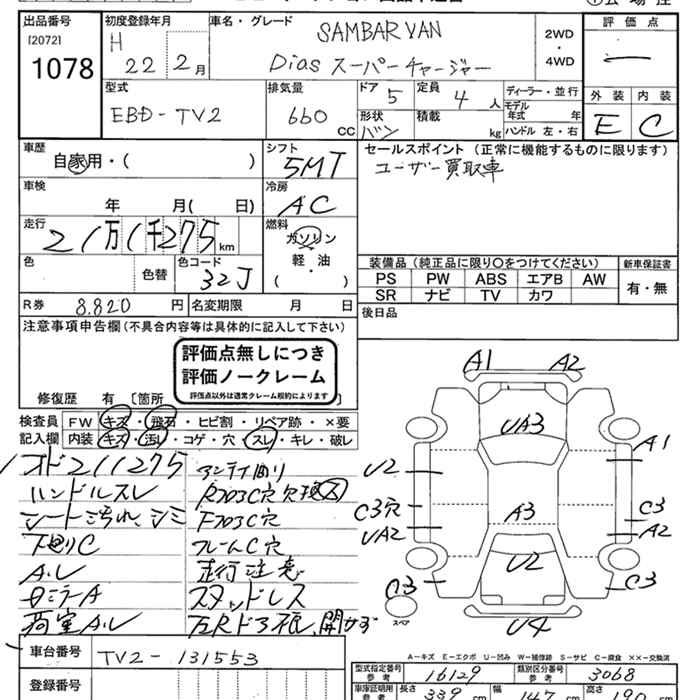 出品番号
[2072]
1078
初度登録年月
H 22年 2月
車名・グレード
SAMBAR VAN
Dias スーパーチャージャー
2WD
・
4WD
評価点
型式
EBD-TV2
排気量
660 CC
ドア
5
定員
4 人
形状
バン
積載
kg
ディーラー・並行
モデル年式 年
ハンドル 左・右
外装
E
内装
C
車歴
自家用・( )
シフト
5MT
セールスポイント (正常に機能するものに限ります)
ユーザー買取車
車検
年 月( 日)
冷房
AC
走行
21万1千275 km
燃料
ガソリン
軽・油
( )
色
色替
色コード
32J
装備品 (純正品に限り〇をつけてください)
新車保証書
PS PW ABS エアB AW
SR ナビ TV カワ
有・無
R券
8.820 円
名変期限 月 日
後日品
注意事項申告欄 (不具合内容等は具体的に記入して下さい)
評価点無しにつき
評価ノークレーム
評価点以外は通常クレーム規約によります
修復歴 有 [箇所
検査員記入欄
FW キズ・飛石・ヒビ割・リペア跡・×要
内装 キズ・汚れ・コゲ・穴・スレ・キレ・破レ
オド211275
ハンドルスレ
シート汚れ、シミ
下廻りC
A.L
ロミラーA
荷室A.L
アンテナ曲り
F703C穴
フレームC穴
走行注意
スタッドレス
A1 A2
UA3
A1
U2
C3穴
UA2
A3
C3
A2
U2
C3
C3
スペア
U4
A-キズ E-エクボ U-凹み W-補修跡 S-サビ C-腐食 XX-交換済
車台番号
TV2-131553
登録番号
型式指定番号
参考
16129
類別区分番号
参考
3068
車庫証明用
参考
長さ 339 cm
幅 147 cm
高さ 190 cm